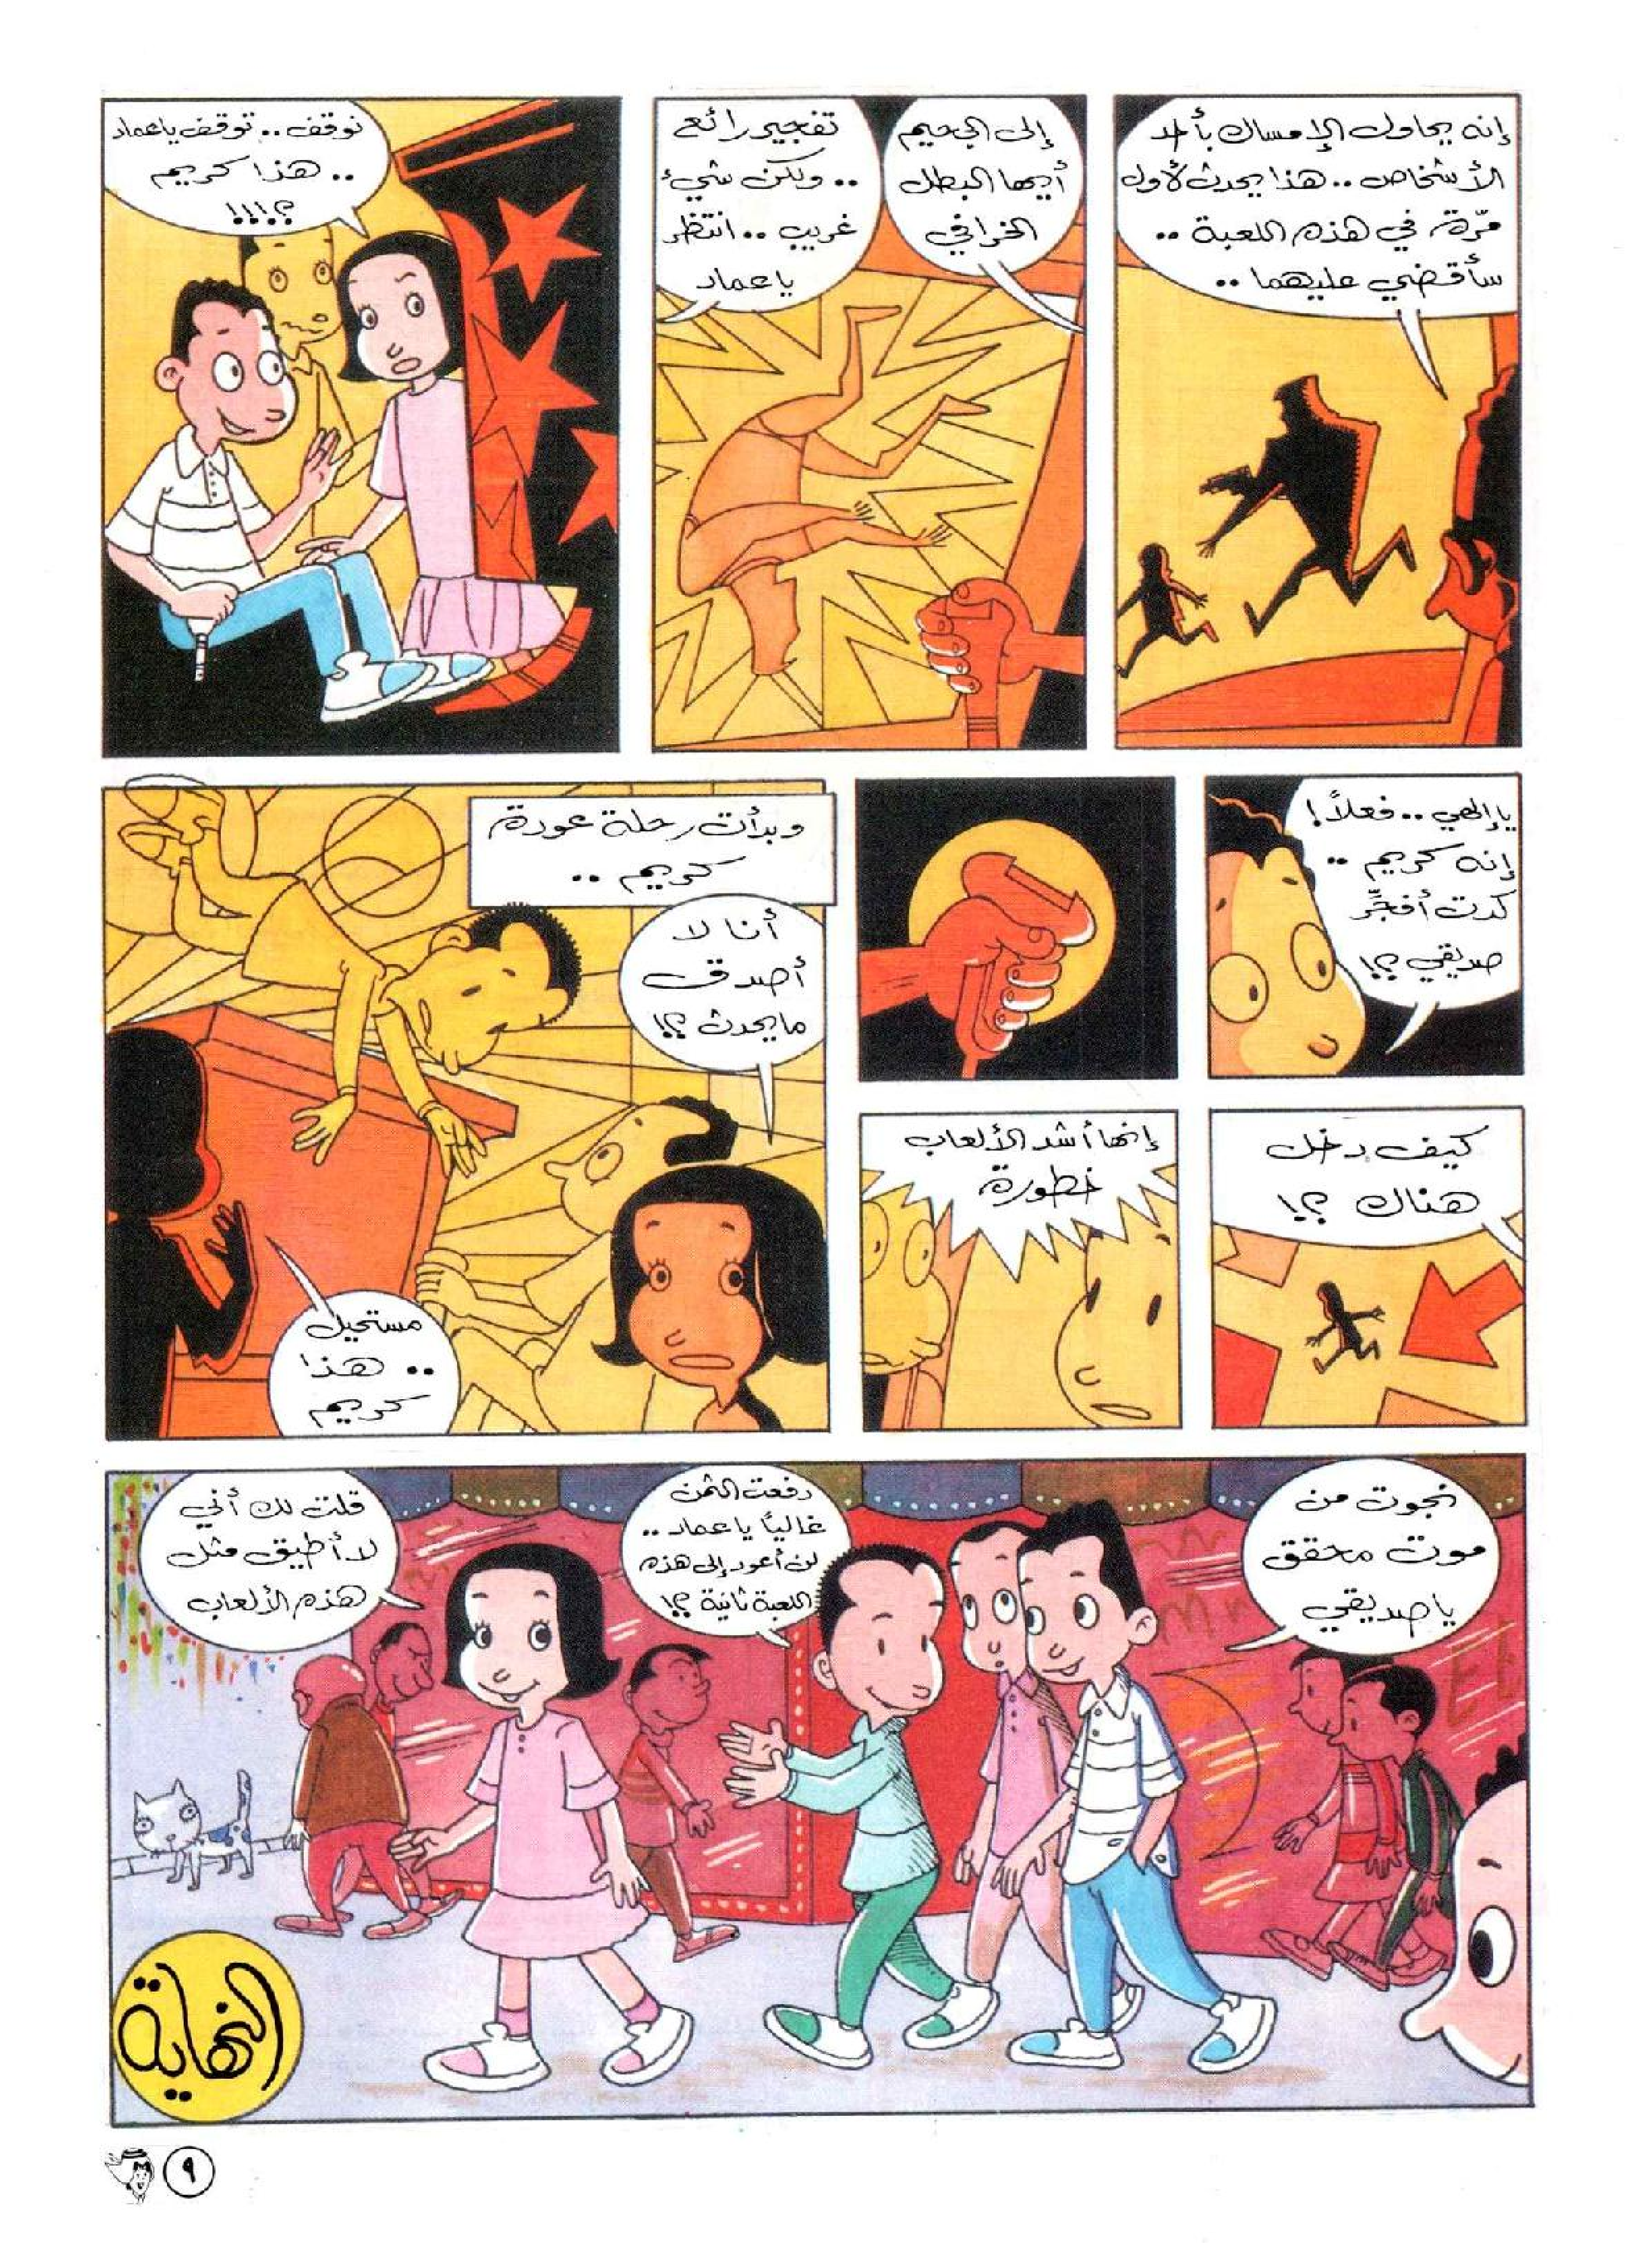 إنه يحاول الإمساك بأحد
الأشخاص .. هذا يحدث لأول
مرّة في هذه اللعبة ..
سأقضي عليهما ..
إلى الجحيم
أيها البطل
الخرافي
تفجير رائع
.. ولكن شيء
غريب .. انتظر
ياعماد
توقف .. توقف ياعماد
.. هذا كريم
؟!!!
ياإلهي .. فعلاً!
إنه كريم ..
كدت أفجِّر
صديقي ؟!
كيف دخل
هناك ؟!
إنها أشد الألعاب
خطورة
وبدأت رحلة عودة
كريم ..
أنا لا
أصدق
مايحدث ؟!
مستحيل
.. هذا
كريم
نجوت من
موت محقق
ياصديقي
دفعت الثمن
غالياً ياعماد ..
لن أعود إلى هذه
اللعبة ثانية ؟!
قلت لك أني
لا أطيق مثل
هذه الألعاب
النهاية
٩